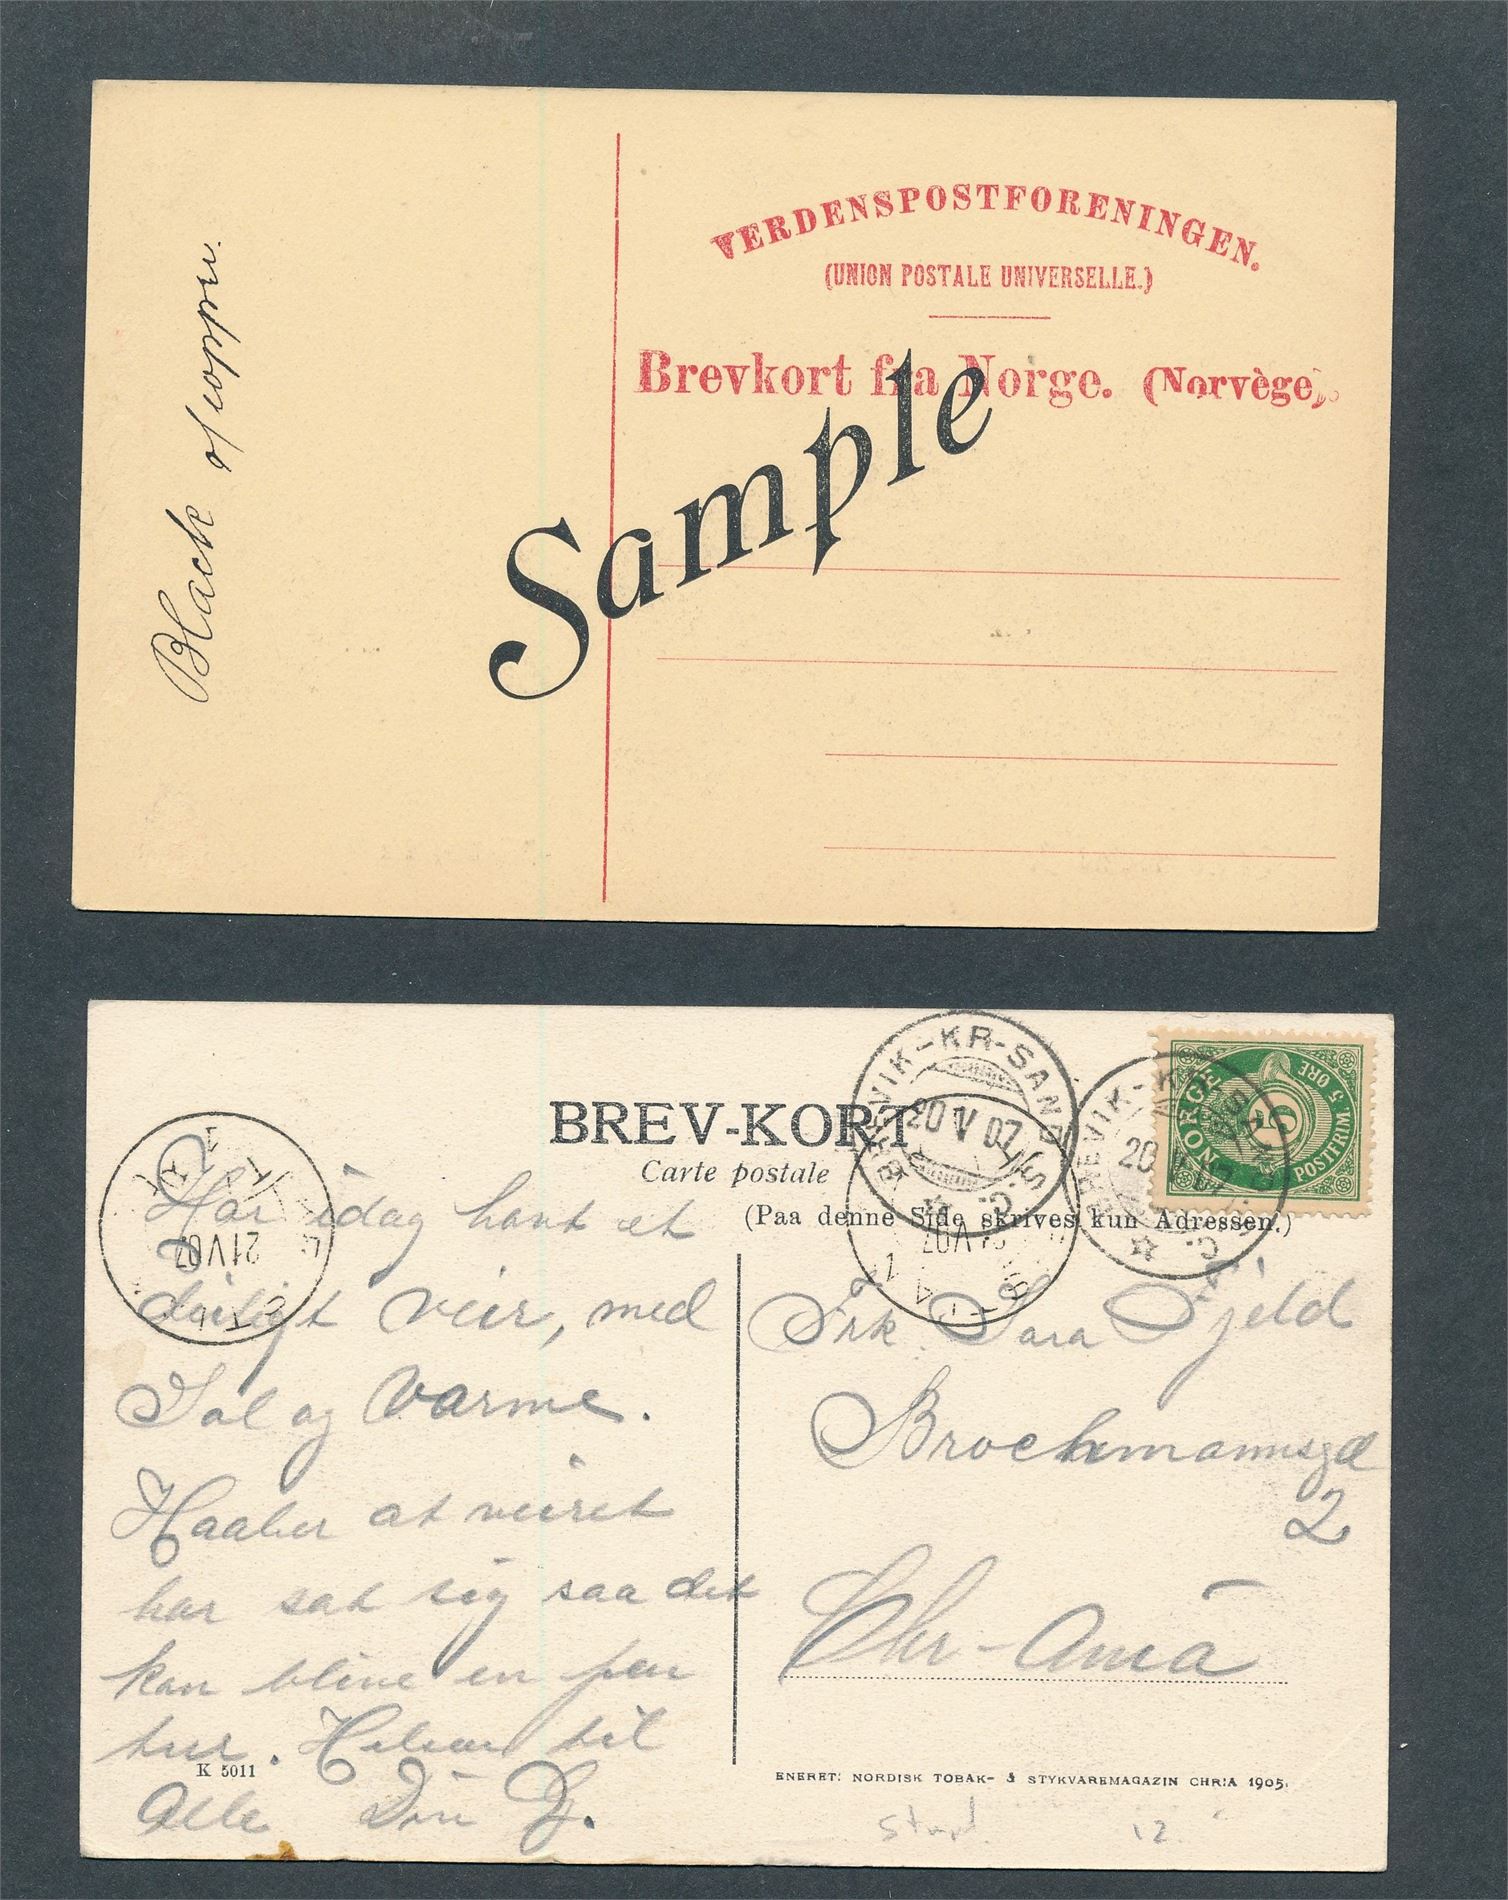 VERDENSPOSTFORENINGEN.
(UNION POSTALE UNIVERSELLE.)
Brevkort fra Norge. (Norvège).
Sample
Black
BREVIK-KR-SAND
20 V 07
C.
BREVIK-KR-SAND
20 V 07
C.
NORGE
5
POSTFRIM. 5 ØRE
21 V 07
20 V 07
BREV-KORT
Carte postale
(Paa denne Side skrives kun Adressen.)
Har idag havt et
deiligt veir, med
Sol og Varme.
Haaber at veiret
har sat sig saa det
kan blive en pen
tur. Hilsen til
Alle Din
Frk. Sara Fjeld
Brochmannsgd
2
Chr-ania
K 5011
ENERET: NORDISK TOBAK- & STYKVAREMAGAZIN CHR:A 1905.
12